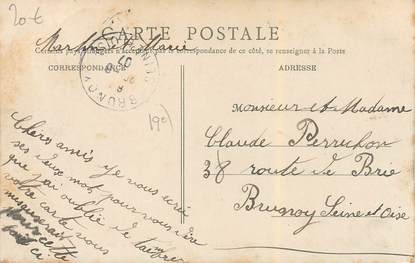 20 €
CARTE POSTALE
Martin et Marie
Certains pays étrangers n'acceptent pas la correspondance de ce côté, se renseigner à la Poste
CORRESPONDANCE
ADRESSE
BRUNOY
19e
Monsieur et Madame
Claude Perruchon
38 route de Brie
Brunoy Seine et Oise
Chers amis je vous écrit
ses mot pour vous dire
que j'ai oublié de timbrer
votre carte vous